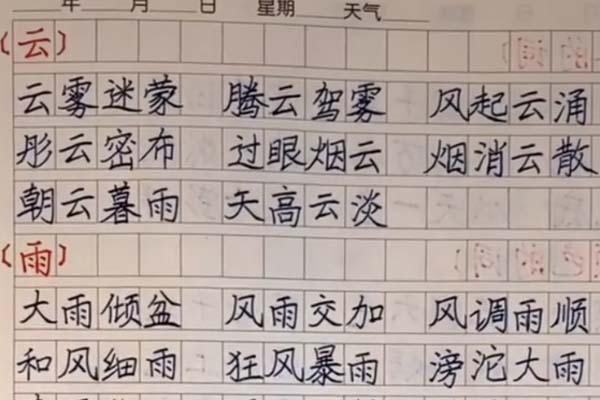 年 月 日 星期 天气
(云)
云雾迷蒙 腾云驾雾 风起云涌
彤云密布 过眼烟云 烟消云散
朝云暮雨 天高云淡
(雨)
大雨倾盆 风雨交加 风调雨顺
和风细雨 狂风暴雨 滂沱大雨